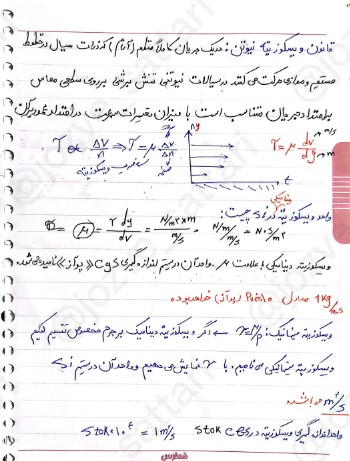 قانون ویسکوزیته نیوتن: در یک جریان کاملاً منظم (آرام) که ذرات سیال در خطوط
مستقیم و موازی حرکت می کنند در سیالات نیوتنی تنش برشی بر روی سطحی مماس
با امتداد جریان متناسب است با میزان تغییرات سرعت در امتداد عمود بر آن
τ ∝ ΔV/n ⇒ τ = μ ΔV/n
ضریب ویسکوزیته
n y
t
τ = μ dv/dy
m/s
m
واحد ویسکوزیته در SI چیست:
μ = τ dy/dv = N/m² × m / m/s = N·s/m²
ویسکوزیته دینامیکی با علامت μ. واحد آن در سیستم اندازه گیری CGS «پواز» نامیده می شود.
1 kg/m.s معادل Poise خواهد بود
ویسکوزیته سینماتیک: ν=μ/ρ ← اگر ویسکوزیته دینامیک بر جرم مخصوص تقسیم کنیم
ویسکوزیته سینماتیکی می نامیم. با ν نمایش می دهیم و واحد آن در سیستم SI
m²/s می باشد
واحد اندازه گیری ویسکوزیته در CGS stok
stok × 10⁴ = 1 m²/s